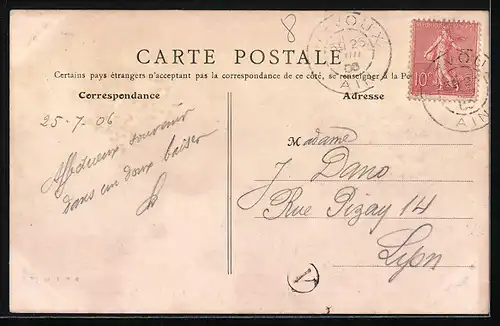 8
CARTE POSTALE
Certains pays étrangers n'acceptant pas la correspondance de ce côté, se renseigner à la Po
Correspondance
Adresse
25-7.06
Affectueux souvenir
dans un doux baiser
Madame
J Dano
Rue Pizay 14
Lyon
JOUX
25
AIN
10
AIN